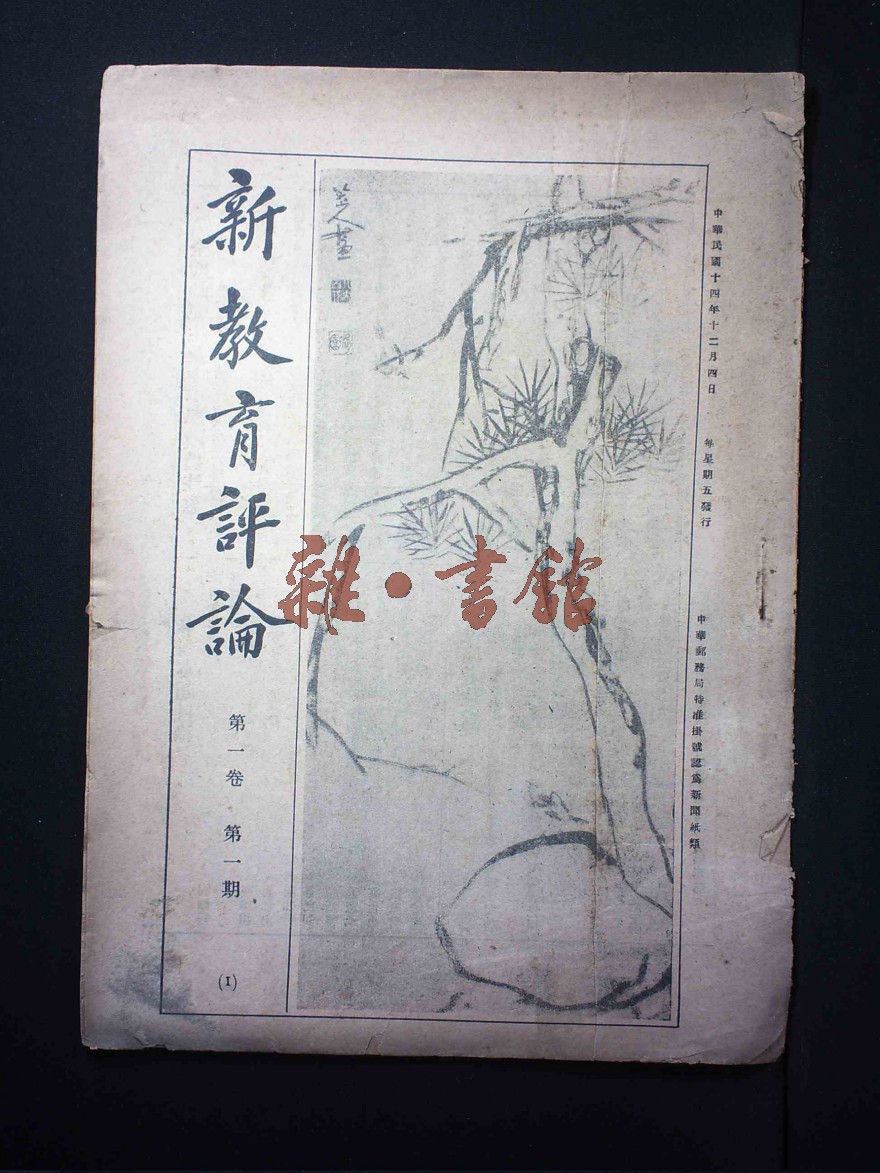 中華民國十四年十二月四日
每星期五發行
中華郵務局特准掛號認爲新聞紙類
八大人畫
新教育評論
第一卷 第一期
(1)
雜·書館